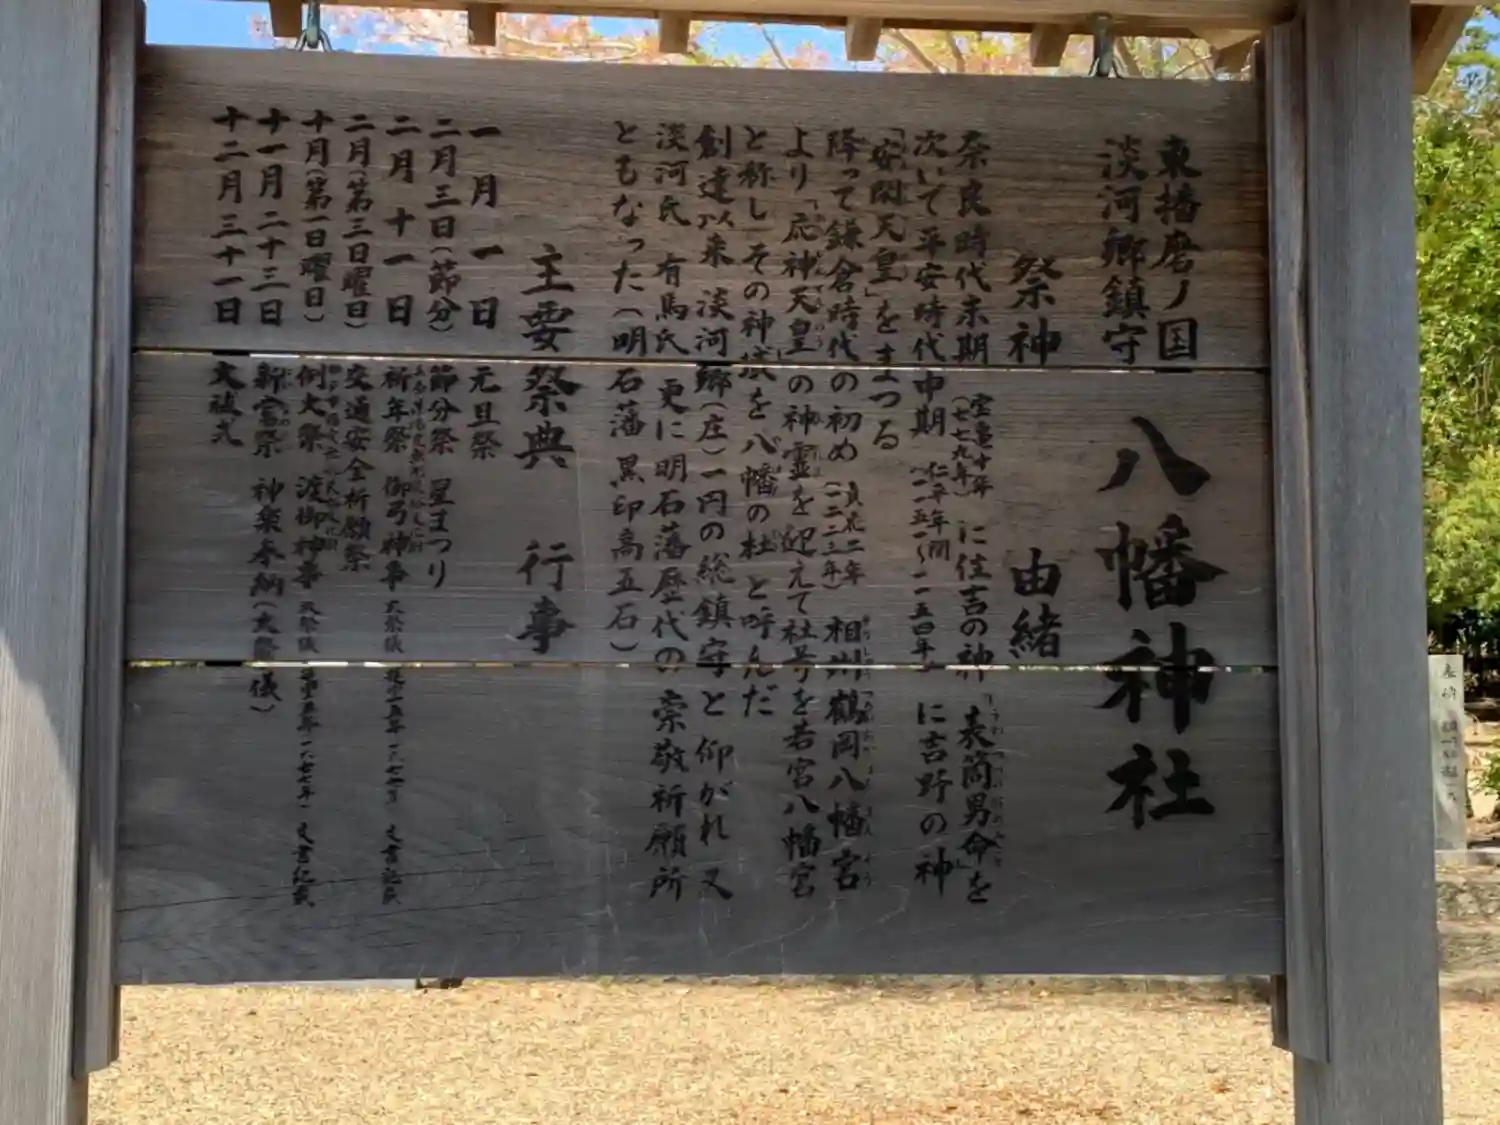 東播磨ノ国
淡河郷鎮守
八幡神社
祭神 由緒
奈良時代末期(宝亀十年 七七九年)に住吉の神「表筒男命」を
次いで平安時代中期(仁平年間 一一五一〜一一五四年)に吉野の神
「安閑天皇」をまつる
降って鎌倉時代の初め(貞応二年 一二二三年)相州鶴岡八幡宮
より「応神天皇」の神霊を迎えて社号を若宮八幡宮
と称し その神域を八幡の杜と呼んだ
創建以来 淡河郷(庄)一円の総鎮守と仰がれ 又
淡河氏 有馬氏 更に明石藩歴代の崇敬祈願所
ともなった(明石藩 黒印高五石)
主要祭典 行事
一月一日 元旦祭
二月三日(節分) 節分祭 星まつり
二月十一日 祈年祭 御弓神事 大祭儀 文書記載
二月(第三日曜日) 交通安全祈願祭
十月(第一日曜日) 例大祭 渡御神事 大祭儀 文書記載
十一月二十三日 新嘗祭 神楽奉納(大祭儀)
十二月三十一日 大祓式